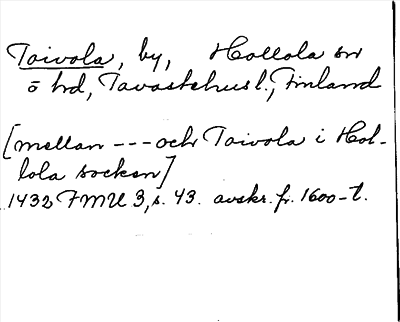 Toivola, by, Hollola sn
ö hd, Tavastehus l., Finland
[mellan --- och Toivola i Hol-
lola socken]
1432 FMU 3, s. 43. avskr. fr. 1600-t.